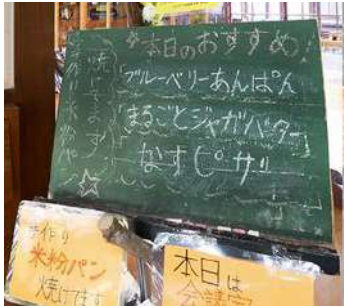 本日のおすすめ!
ブルーベリーあんぱん
まるごとジャガバター
なすピザ
焼けてます
手作り米粉パン
手作り
米粉パン
焼けてます
本日は
会議室